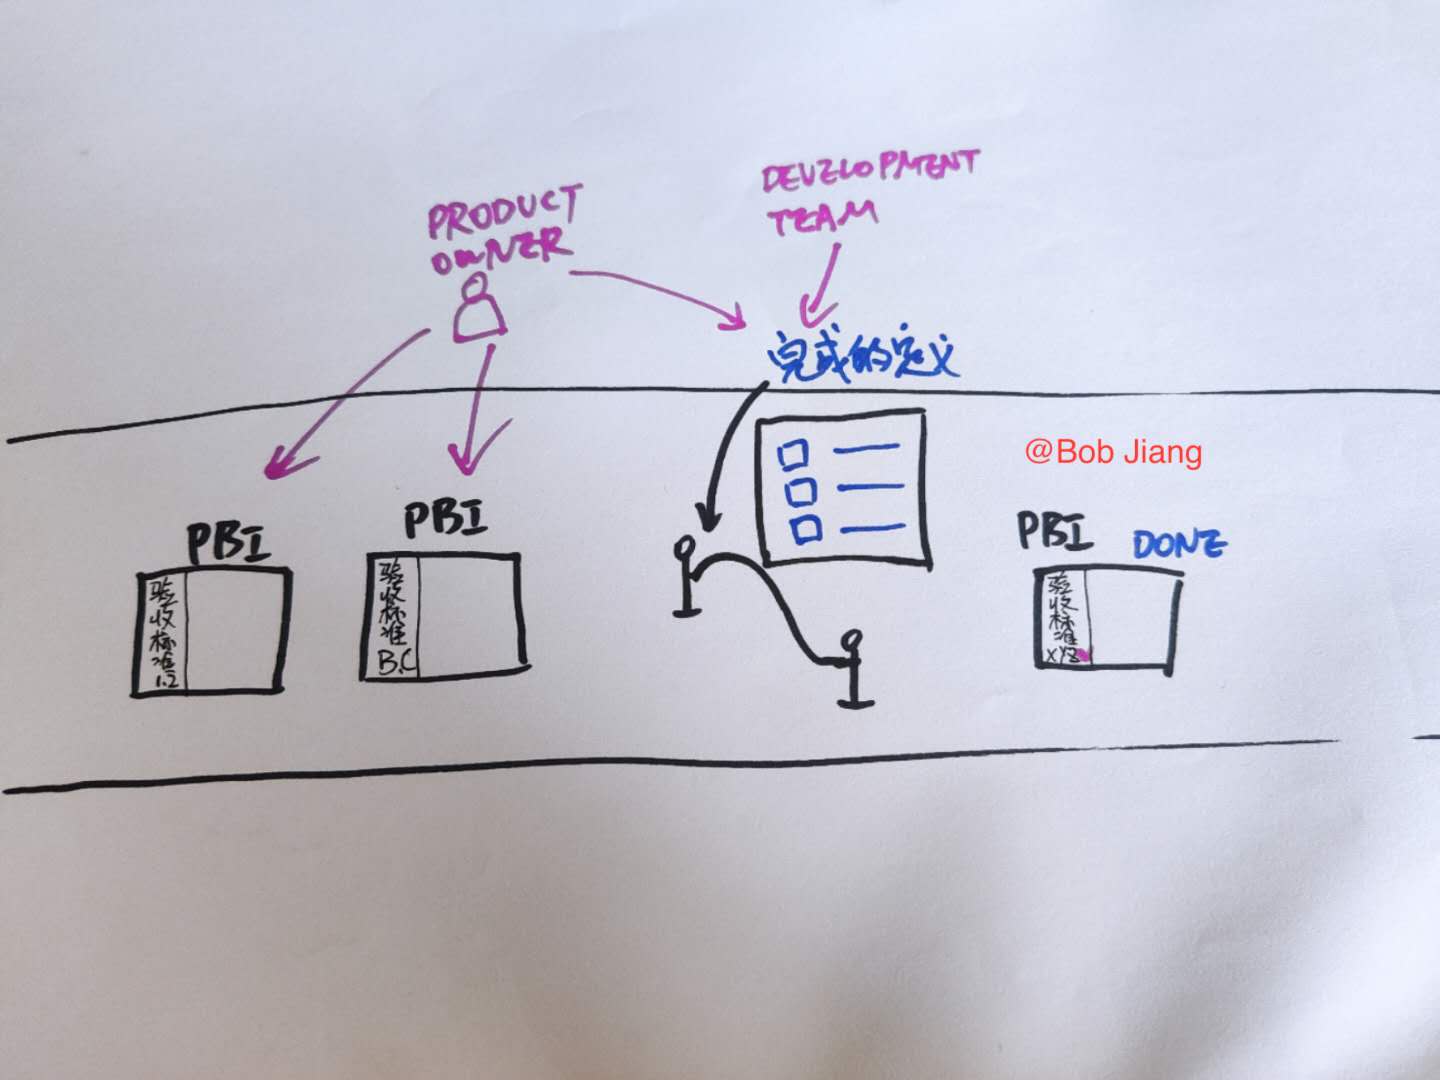 PRODUCT
OWNER
DEVELOPMENT
TEAM
完成的定义
@Bob Jiang
PBI
验收标准
1.2
PBI
验收标准
B.C
PBI
DONE
验收标准
XYZ